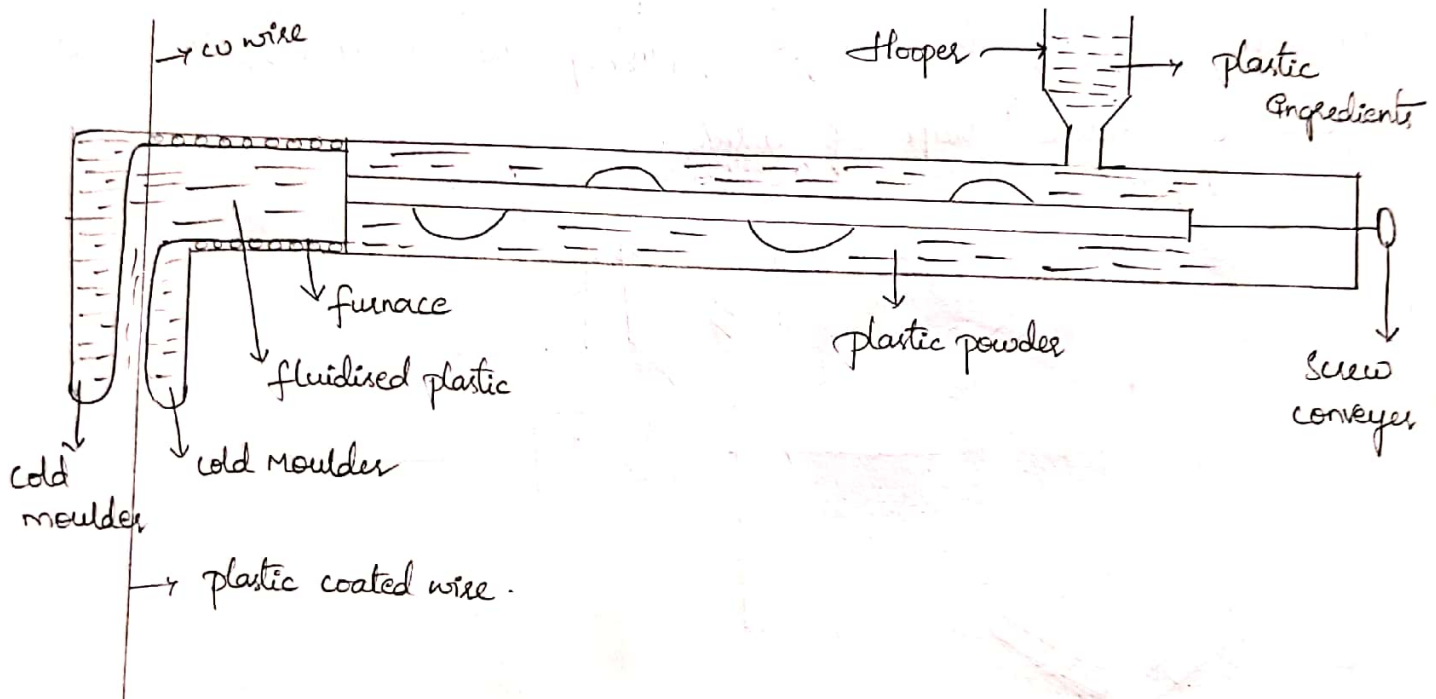 cu wire
Hooper
plastic
ingredients
furnace
fluidised plastic
plastic powder
screw
conveyer
cold
moulder
cold moulder
plastic coated wire.